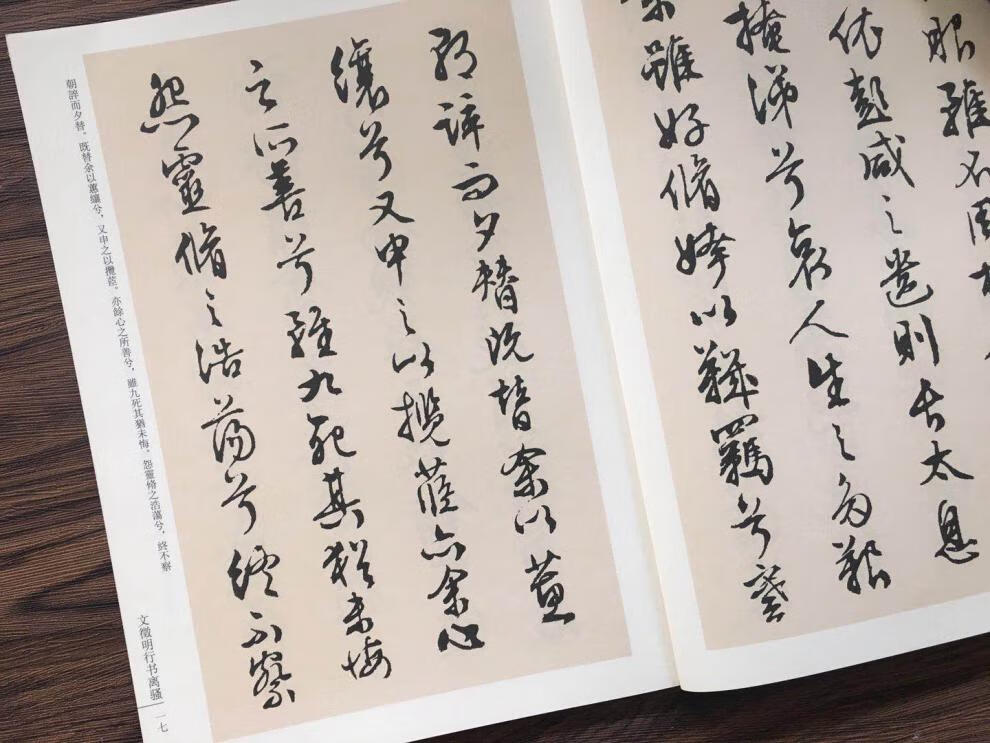 服雖不周
依彭咸之遺則長太息
掩涕兮哀人生之多艱
雖好脩姱以鞿羈兮謇
朝誶而夕替既替余以蕙
纕兮又申之以攬茝亦余心
之所善兮雖九死其猶未悔
怨靈脩之浩蕩兮終不察
朝誶而夕替。既替余以蕙纕兮，又申之以攬茝。亦餘心之所善兮，雖九死其猶未悔。怨靈脩之浩蕩兮，終不察
文徵明行书离骚
一七